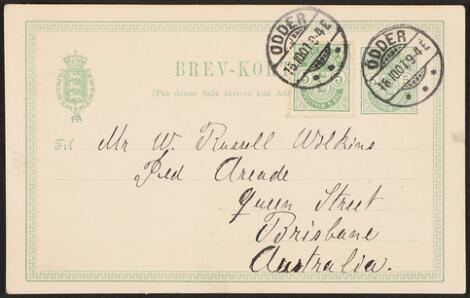 BREV-KO
(Paa denne Side skrives kun Adr
ODDER
15.10.01.9-4E
ODDER
15.10.01.9-4E
5 5
Til Mr W. Russell Wilkins
Red Arcade
Queen Street
Brisbane
Australia.